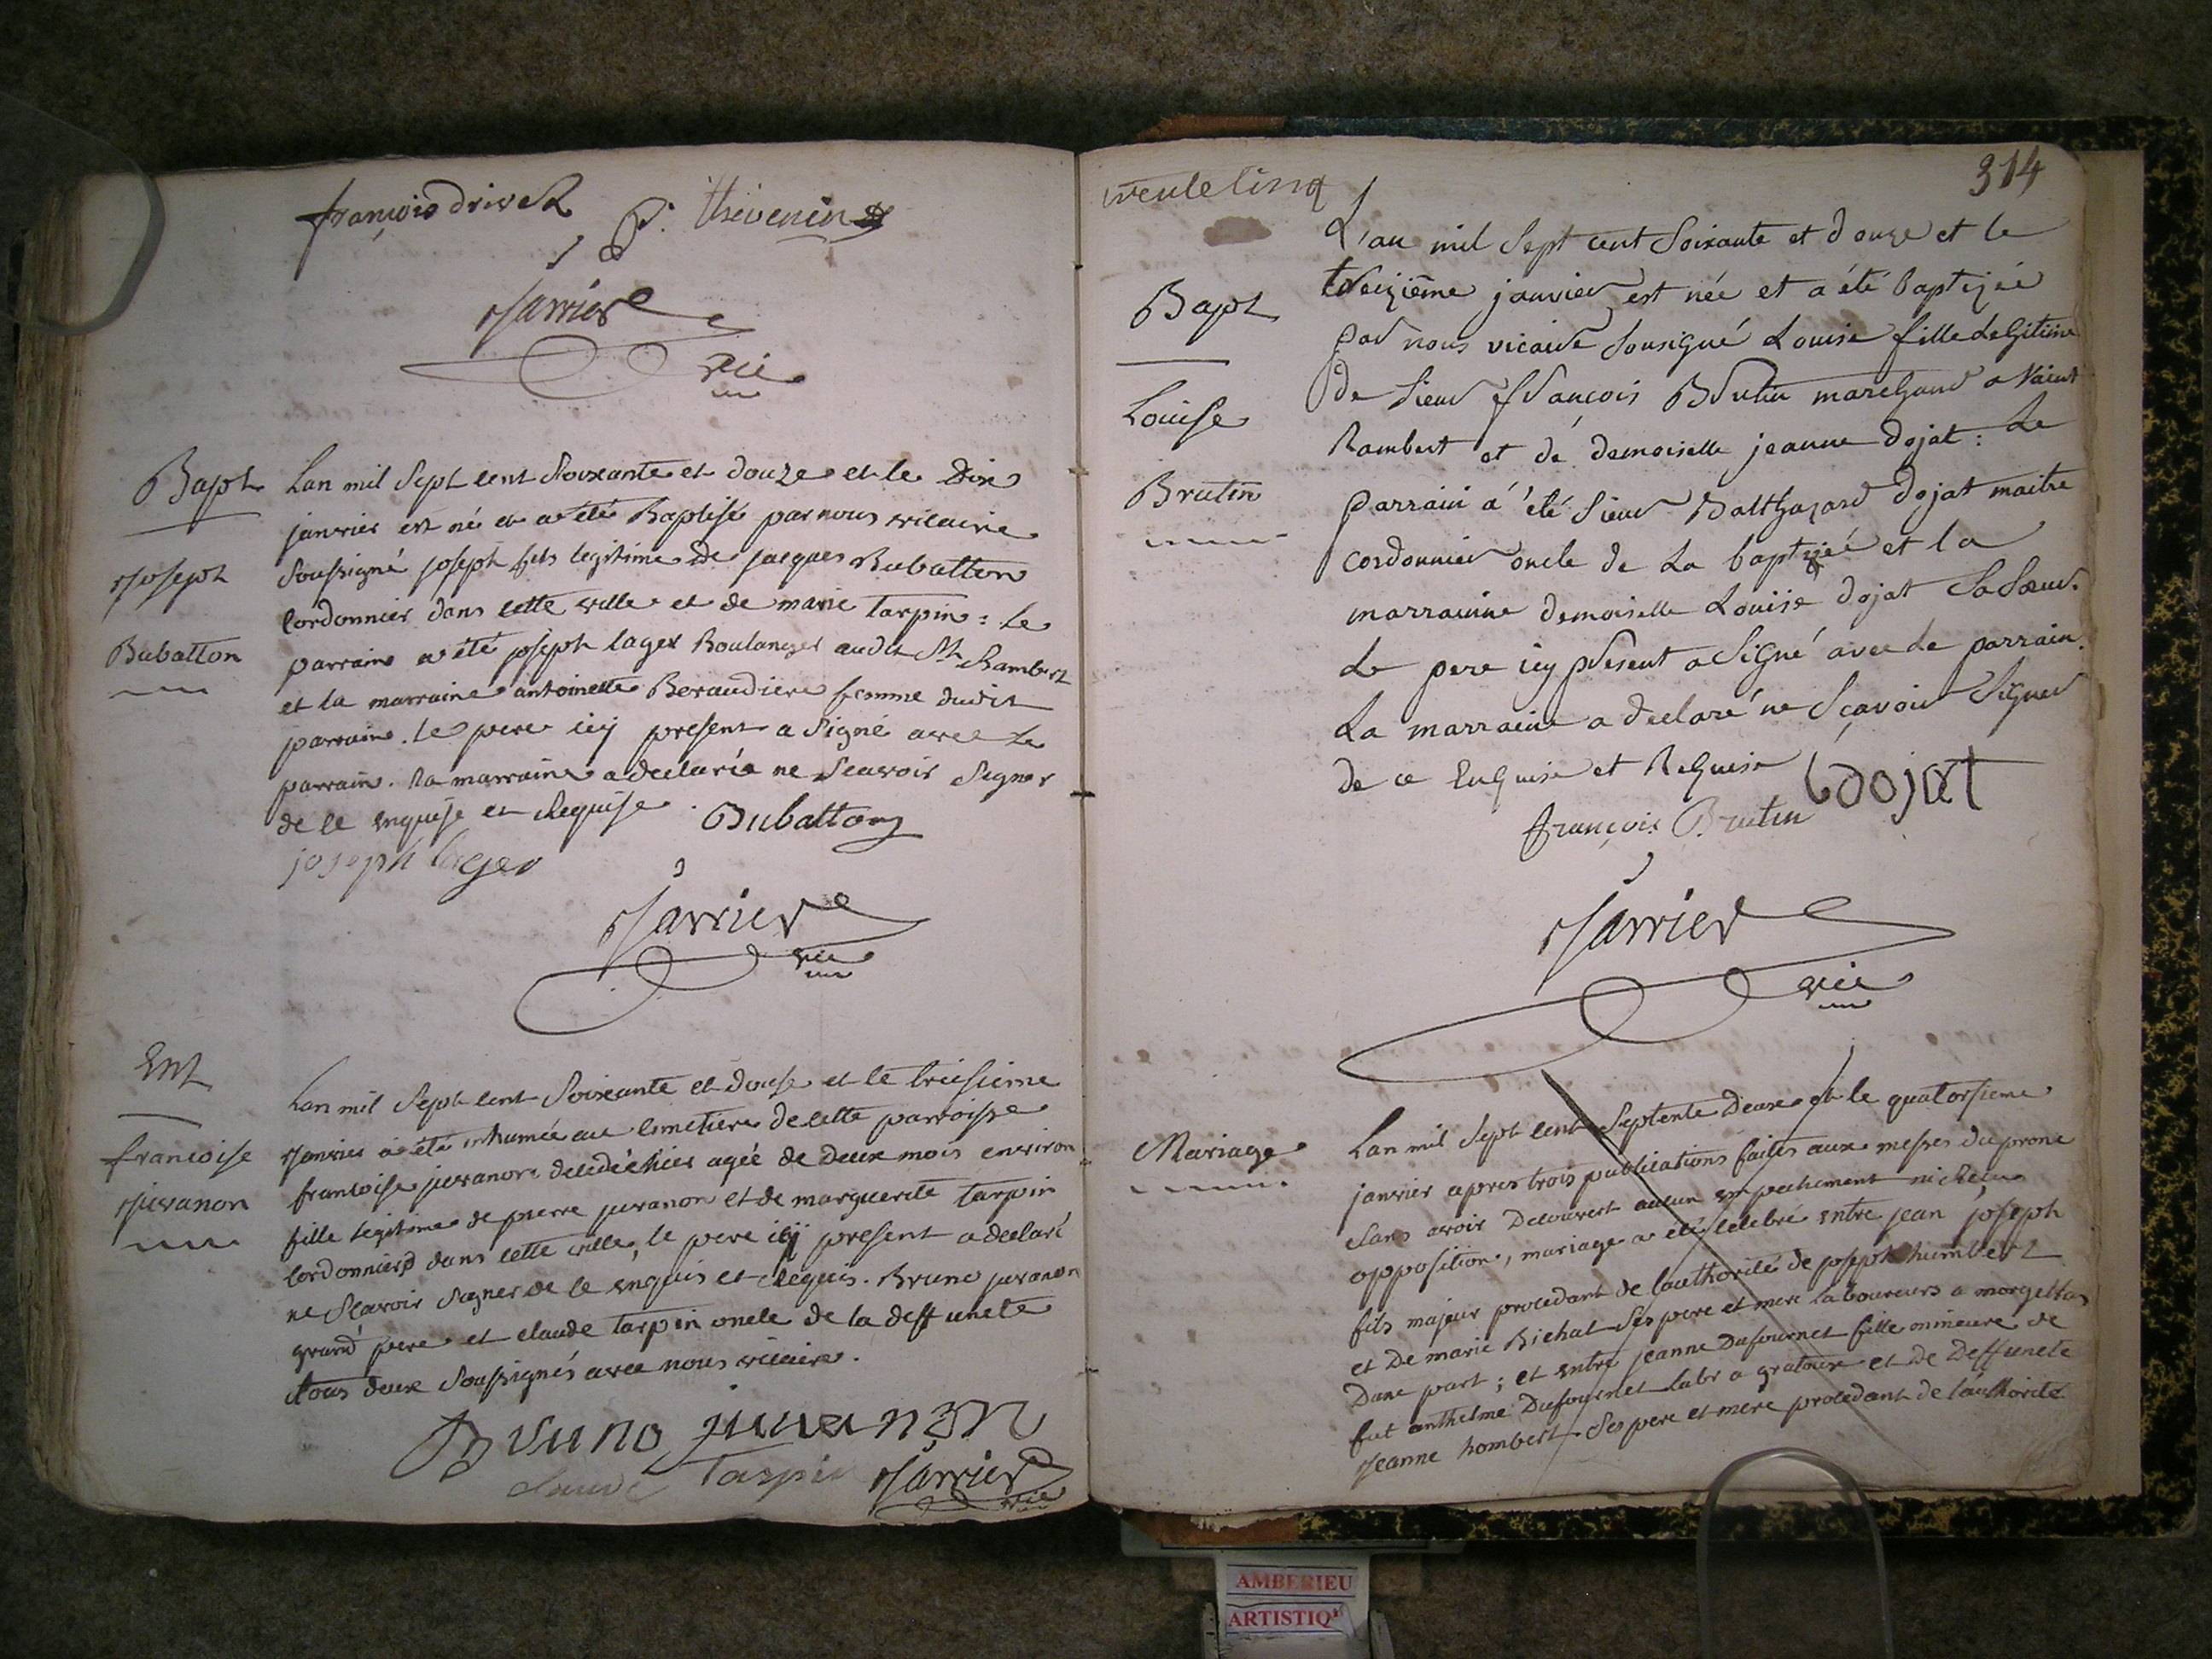 françois drivet P. thevenin
Jarrier
vic
Bapt
Joseph
Bubatton
Lan mil Sept cent Soixante et douze et le Dix
janvier est né et a été Baptisé par nous vicaire
Soussigné joseph fils legitime de jacques Bubatton
Cordonnier dans cette ville et de marie tarpin : le
parrain a été joseph lager Boulanger audit St Rambert
et la marraine antoinette Beraudiere femme dudit
parrain. le pere icy present a signé avec le
parrain. la marraine a declarée ne Scavoir Signer
de ce enquise et Requise. Bubatton
joseph lager
Jarrier
vic
Ent
francoise
juvanon
Lan mil Sept cent Soixante et douse et le treisieme
Janvier a été inhumée au cimetiere de cette parroisse
francoise juvanon decedée hier agée de deux mois environ
fille legitime de pierre juvanon et de marguerite tarpin
Cordonniers dans cette ville, le pere icy present a declaré
ne Scavoir Signer de ce enquis et Requis. Bruno juvanon
grand pere et claude tarpin oncle de la deffuncte
tous deux Soussignés avec nous vicaire.
Bruno juvanon
claude Tarpin Jarrier
vic
trente cinq
314
Bapt
Louise
Brutin
L'an mil Sept cent Soixante et douze et le
treizième janvier est née et a été baptizée
par nous vicaire Sousigné Louise fille Legitime
de Sieur francois Brutin marchand a Saint
Rambert et de demoiselle jeanne dojat : Le
parrain a été Sieur Balthazard dojat maitre
cordonnier oncle de La baptizée et la
marrainne demoiselle Louise dojat Sa Sœur.
Le pere icy present a Signé avec Le parrain.
La marraine a declaré ne Sçavoir Signer
de ce Enquise et Requise
bdojat
françois Brutin
Jarrier
vic
Mariage
Lan mil Sept cent Septente Deux et le quatorsieme
janvier apres trois publications faites aux messes du prone
Sans avoir Decouvert aucun empechement ni
opposition, mariage a été celebré entre jean joseph
fils majeur procedant de lauthorité de joseph humbert
et De marie Bichat Ses pere et mere laboureurs a morgellas
Dune part ; et entre jeanne Dufournet fille mineure de
fut anthelme Dufournet labr a gratoux et de Deffuncte
Jeanne hombert Ses pere et mere procedant de l'authorité
AMBERIEU
ARTISTIQ